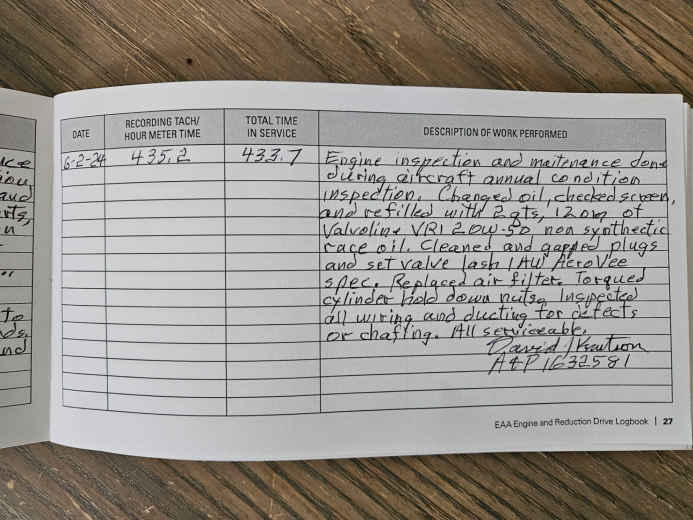 uce
iou,
and
rts,
n
to
ds.
and
DATE
RECORDING TACH/
HOUR METER TIME
TOTAL TIME
IN SERVICE
DESCRIPTION OF WORK PERFORMED
6-2-24 435.2 433.7 Engine inspection and maitenance done
during aircraft annual condition
inspection. Changed oil, checked screen,
and refilled with 2 qts, 12 oz of
Valvoline VR1 20W-50 non synthectic
race oil. Cleaned and gapped plugs
and set valve lash IAW AeroVee
spec. Replaced air filter. Torqued
cylinder hold down nuts. Inspected
all wiring and ducting for defects
or chafing. All serviceable.
David
A&P 1632581
EAA Engine and Reduction Drive Logbook | 27